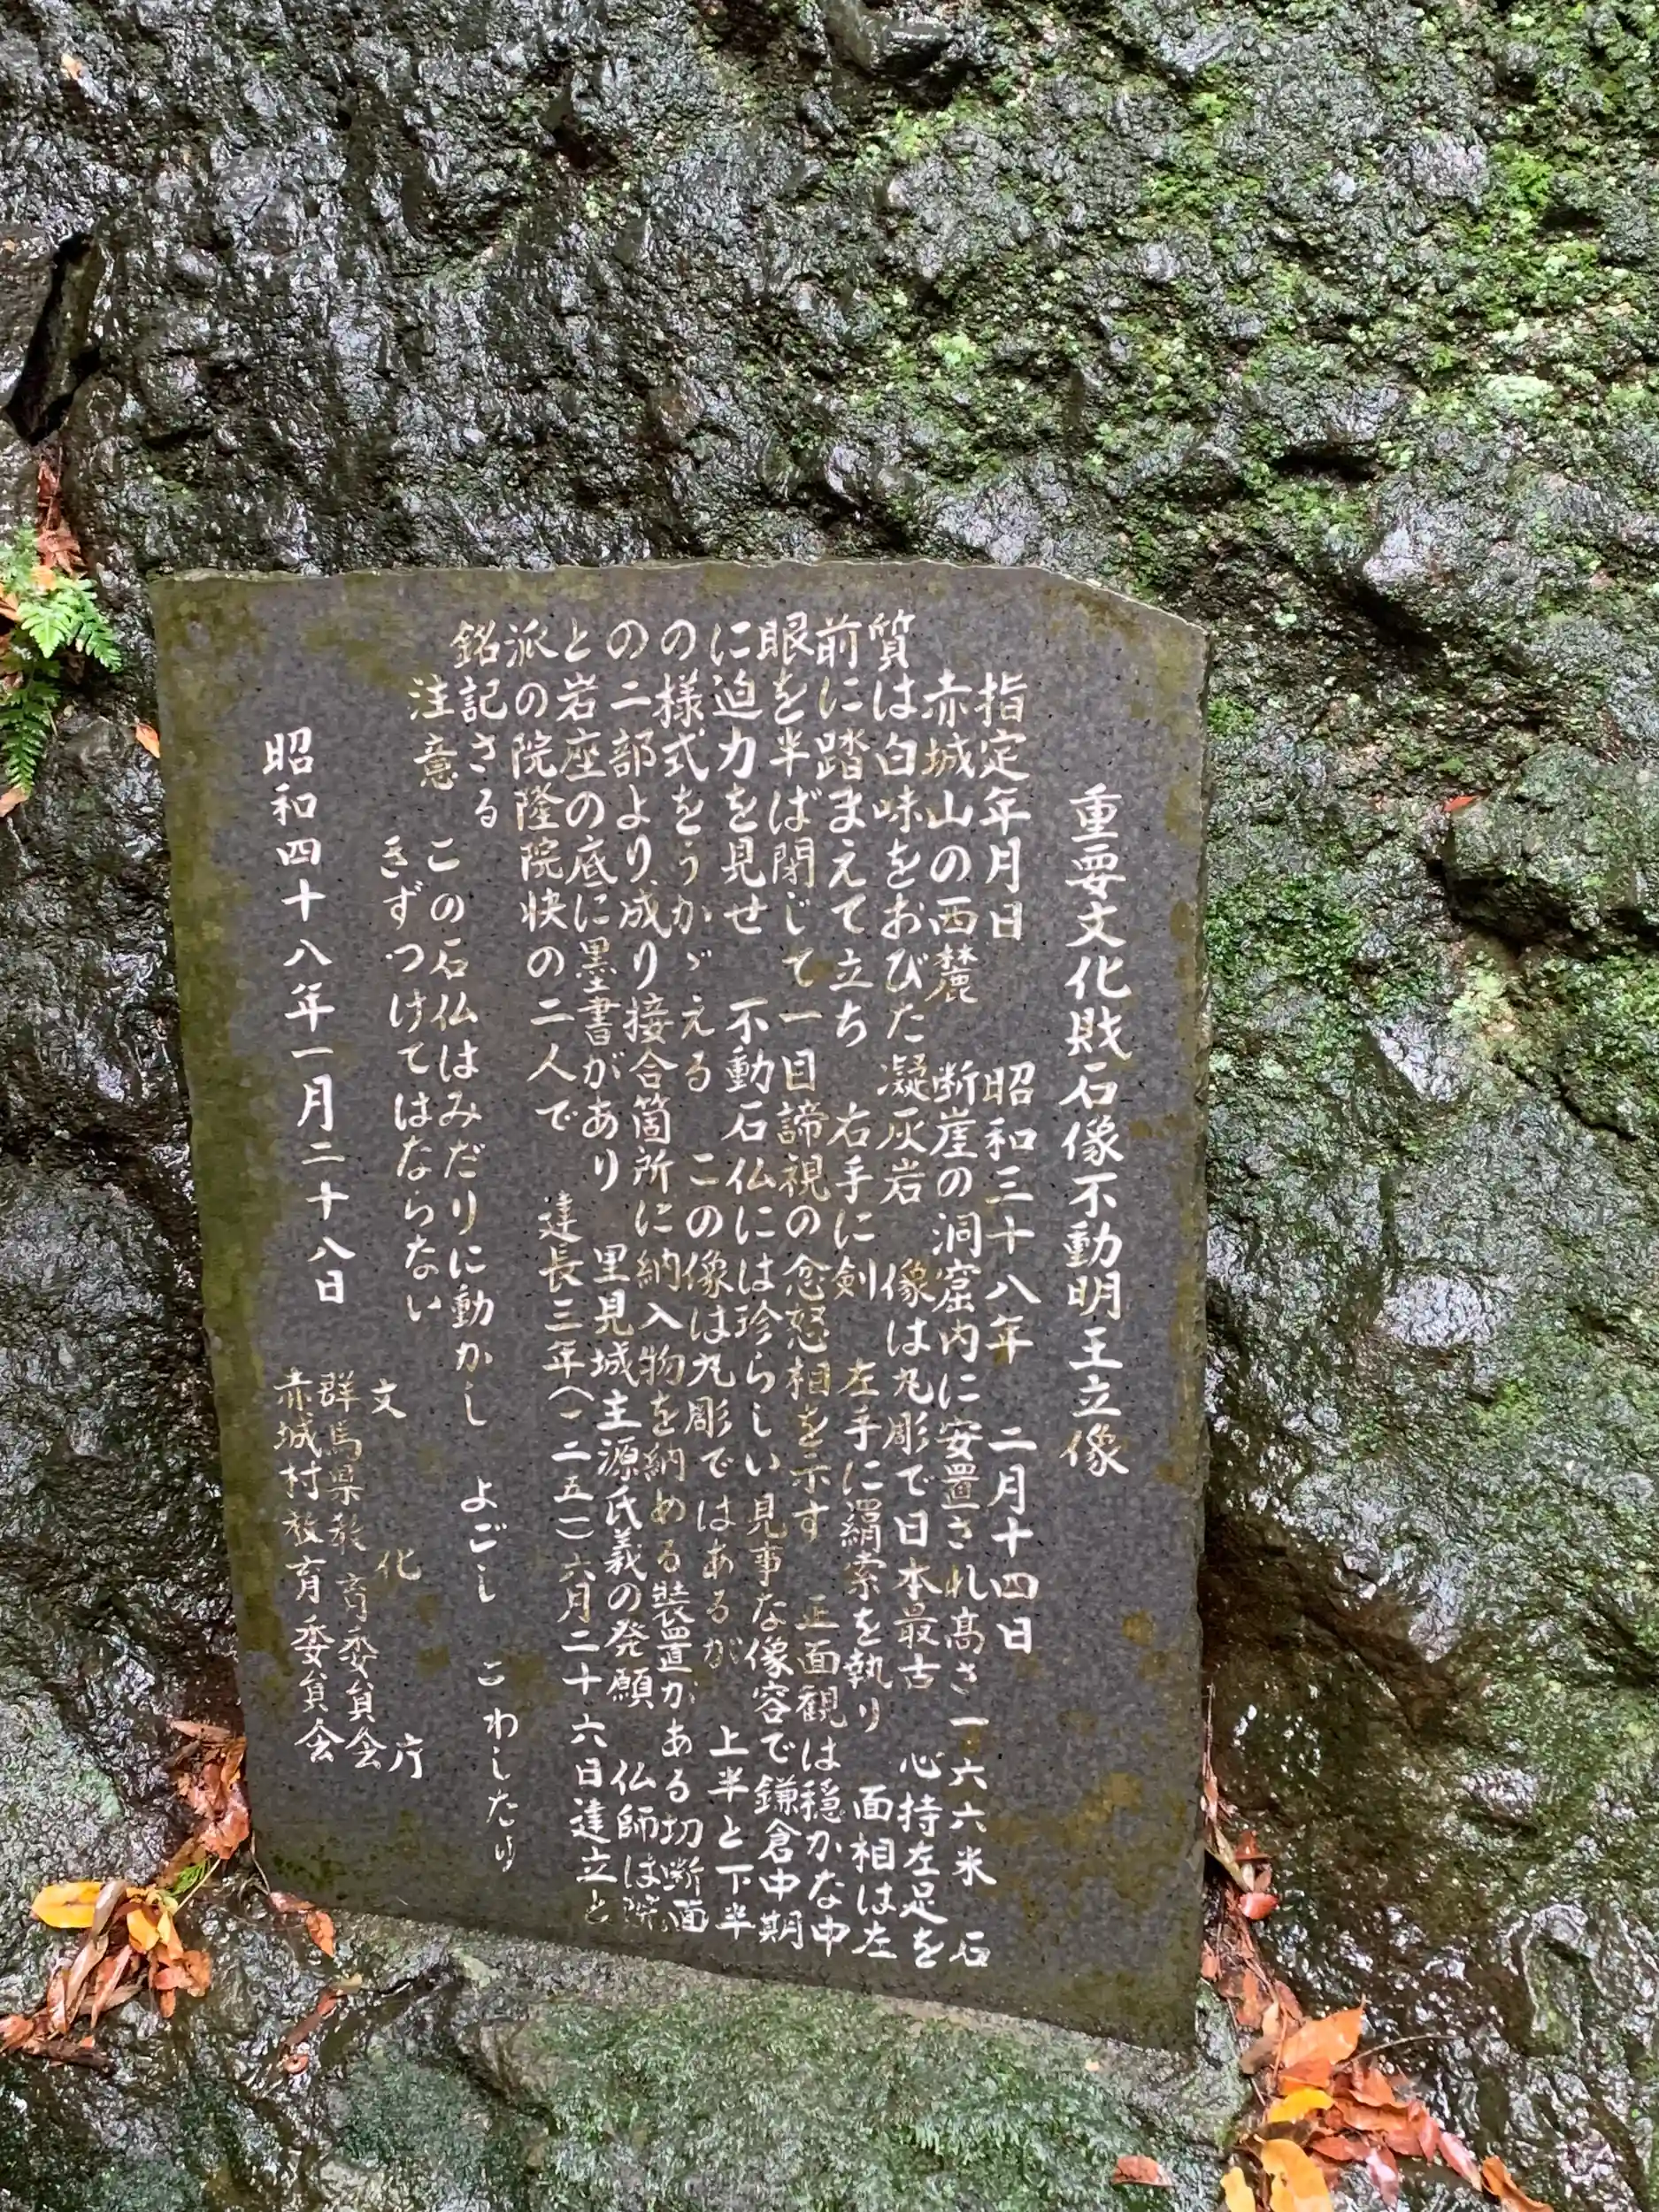 重要文化財石像不動明王立像
指定年月日　昭和三十八年　二月十四日
赤城山の西麓　断崖の洞窟内に安置され高さ一六六米　石
質は白味をおびた凝灰岩　像は丸彫で日本最古　心持左足を
前に踏まえて立ち　右手に剣　左手に羂索を執り　面相は左
眼を半ば閉じて一目諦視の忿怒相を示す　正面観は穏かな中
に迫力を見せ　不動石仏には珍らしい見事な像容で鎌倉中期
の様式をうかゞえる　この像は丸彫ではあるが　上半と下半
の二部より成り接合箇所に納入物を納める装置がある切断面
と岩座の底に墨書があり　里見城主源氏義の発願　仏師は院
派の院隆院快の二人で　建長三年(一二五一)六月二十六日建立と
銘記さる
注意　この石仏はみだりに動かし　よごし　こわしたり
きずつけてはならない
文化庁
群馬県教育委員会
赤城村教育委員会
昭和四十八年一月二十八日